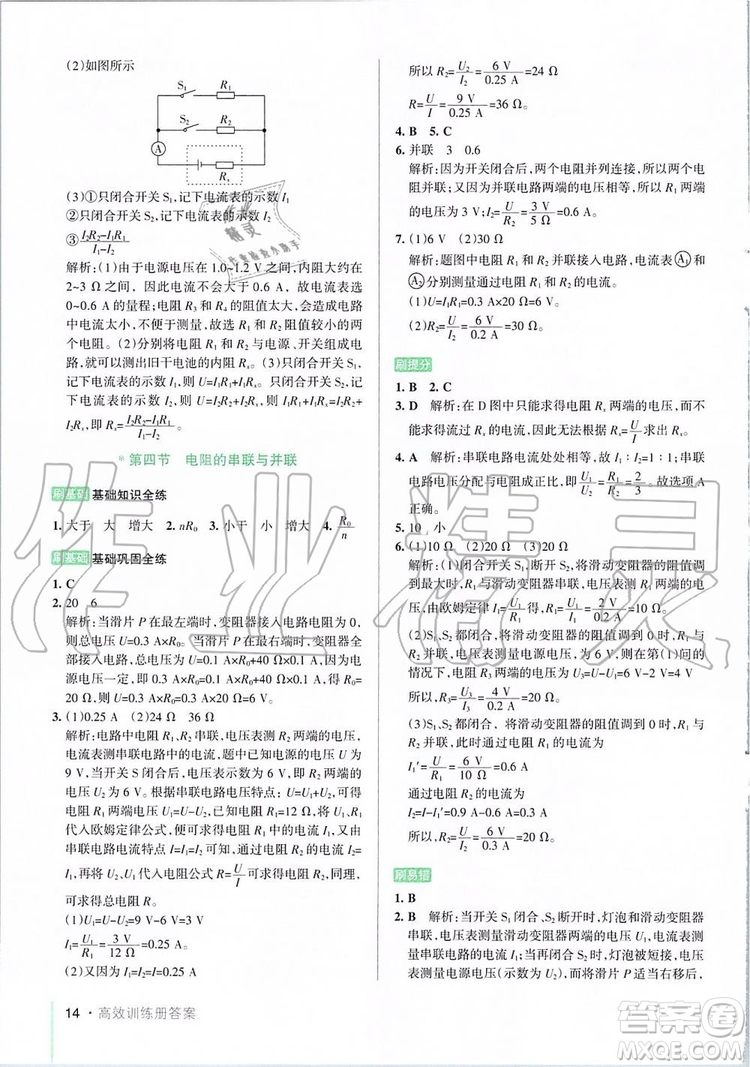 (2)如图所示
S₁ R₁
S₂ R₂
A
Rₓ
(3)①只闭合开关 S₁,记下电流表的示数 I₁
②只闭合开关 S₂,记下电流表的示数 I₂
③(I₂R₂−I₁R₁)/(I₁−I₂)
解析:(1)由于电源电压在 1.0~1.2 V 之间,内阻大约在
2~3 Ω 之间,因此电流不会大于 0.6 A,故电流表选
0~0.6 A 的量程;电阻 R₃ 和 R₄ 的阻值太大,会造成电路
中电流太小,不便于测量,故选 R₁ 和 R₂ 进行实验。
(2)将电流表、旧干电池和电阻 R₂ 与电源、开关组成电
路,就可以测出旧干电池的内阻。(3)只闭合开关 S₁,
记下电流表的示数 I₁,则 U=I₁R₁+I₁Rₓ。只闭合开关 S₂,
记下电流表的示数 I₂,则 U=I₂R₂+I₂Rₓ,I₁R₁+I₁Rₓ=I₂R₂+
I₂Rₓ,即 Rₓ=(I₂R₂−I₁R₁)/(I₁−I₂)。
*第四节 电阻的串联与并联
刷基础 基础知识全练
1. 大于 大 增大 2. nR₀ 3. 小于 小 增大 4. R₀/n
刷基础 基础巩固全练
1. C
2. 20 6
解析:当滑片 P 在最左端时,变阻器接入电路电阻为 0,
则总电压 U=0.3 A×R₀。当滑片 P 在最右端时,变阻器全
部接入电路,总电压 U=0.1 A×R₀+0.1 A×40 Ω。因为电
源电压一定,即 0.3 A×R₀=0.1 A×R₀+0.1 A×40 Ω,解得
R₀=20 Ω,则电源电压 U=0.3 A×R₀=0.3 A×20 Ω=6 V。
3. (1)0.25 A (2)24 Ω 36 Ω
解析:电路中电阻 R₁、R₂ 串联,电压表测 R₂ 两端的电压,
电流表测串联电路中的电流,且已知电源的电压 U 为
9 V,当闭合开关后,电压表示数为 6 V,即 R₂ 两端的电压
为 6 V。根据串联电路电压特点:U=U₁+U₂,可求得电阻
R₁ 两端电压 U₁=U−U₂,又已知电阻 R₁=12 Ω,将 U₁、R₁
代入欧姆定律公式,即可求得通过电阻 R₁ 的电流 I₁,又由
串联电路电流特点可知,通过电阻 R₂ 的电流 I₂=I=
I₁,再将 U₂、I₂ 代入公式 R=U/I 可求得电阻 R₂,同理,
可求得总电阻 R。
(1)U₁=U−U₂=9 V−6 V=3 V
I₁=U₁/R₁=3 V/12 Ω=0.25 A。
(2)又因为 I=I₂=I₁=0.25 A,
所以 R₂=U₂/I₂=6 V/0.25 A=24 Ω
R=U/I=9 V/0.25 A=36 Ω。
4. B 5. C
6. 并联 3 0.6
解析:因为开关闭合后,两个电阻并列连接,所以它们组
成并联电路。因为并联电路两端的电压相等,所以 R₁ 两端
的电压为 3 V;I₁=U/R₁=3 V/5 Ω=0.6 A。
7. (1)6 V (2)30 Ω
解析:题图中电阻 R₁ 和 R₂ 并联接入电路,电流表 A₁ 和
A₂ 分别测量通过 R₁ 和 R₂ 的电流。
(1)U=I₁R₁=0.3 A×20 Ω=6 V。
(2)R₂=U/I₂=6 V/0.2 A=30 Ω。
刷提分
1. B 2. C
3. D 解析:在 D 图中只能求得电阻 Rₓ 两端的电压,而无
法求得通过 Rₓ 的电流,因此无法根据 R=U/I 求得 Rₓ。
4. A 解析:串联电路电流处处相等,故 I₁∶I₂=1∶1;串联
电路电压分配与电阻成正比,即 U₁/U₂=R₁/R₂=3/5。
5. 10 小
6. (1)10 Ω (2)10 Ω (3)20 Ω
解析:(1)闭合开关 S₁,断开 S₂,将滑动变阻器的阻值调
到最大时,R₁ 与滑动变阻器串联,电压表测 R₁ 两端电压,
由欧姆定律 I=U/R 得,R₁=U₁/I₁=2 V/0.2 A=10 Ω。
(2)S₁、S₂ 都闭合,将滑动变阻器的阻值调到 0 时,
电压表测量电源电压,为 6 V。则在第(1)问的
情况下,R₃ 两端的电压 U₃=U−U₁=6 V−2 V=4 V
所以,R₃=U₃/I₃=4 V/0.2 A=20 Ω。
(3)S₁、S₂ 都闭合,将滑动变阻器的阻值调到 0 时,R₁ 与
R₂ 并联,此时通过电阻 R₁ 的电流
I₁′=U/R₁=6 V/10 Ω=0.6 A
通过电阻 R₂ 的电流
I₂=I−I₁′=0.9 A−0.6 A=0.3 A
所以,R₂=U/I₂=6 V/0.3 A=20 Ω。
刷易错
1. B
2. B 解析:当开关 S₁ 闭合、S₂ 断开时,灯泡和滑动变阻器
串联,电压表测量滑动变阻器两端的电压,电流表测量电
路中的电流。当开关 S₁、S₂ 都闭合时,灯泡被短接,电压
表测量电源电压(示数为 U)。而将滑片 P 适当右移后,
14·高效训练册答案
作业精灵
答案圈
MXQE.COM